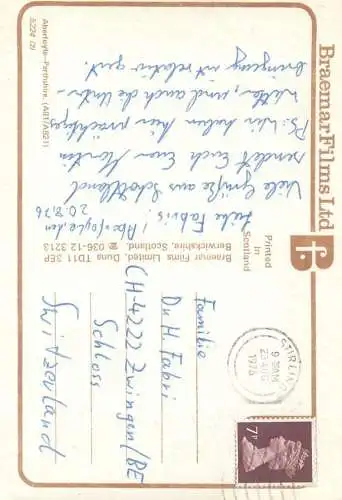 Braemar Films Ltd
Aberfoyle-Perthshire. (AB1/A821)
5/224 (2)
Liebe Fabris! Aberfoyle, den
20.8.76
Viele Grüße aus Schottland
sendet Euch Euer Martin
PS: Wir haben hier prächtiges
Wetter, und auch die Unter-
bringung ist relativ gut.
Printed
in
Scotland
Braemar Films Limited, Duns TD11 3EP
Berwickshire, Scotland. ☎ 036-12 3213
STIRLING
9 30AM
23 AUG
1976
7P
Familie
Dr. H. Fabri
Schloss
CH-4222 Zwingen/BE
Switzerland